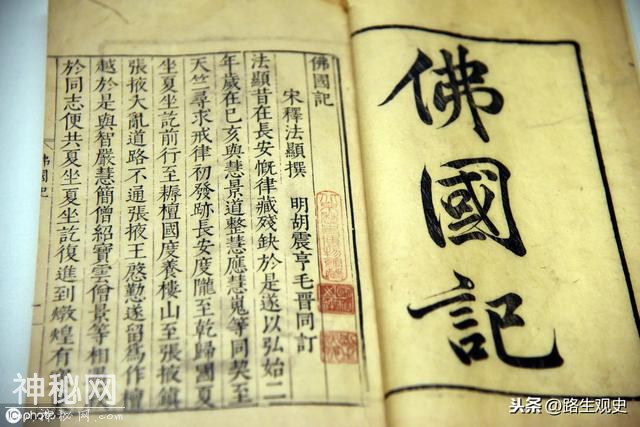 佛國記
佛國記
宋釋法顯撰 明胡震亨毛晉同訂
法顯昔在長安慨律藏殘缺於是遂以弘始二
年歲在巳亥與慧景道整慧應慧嵬等同契至
天竺尋求戒律初發跡長安度隴至乾歸國夏
坐夏坐訖前行至耨檀國度養樓山至張掖鎮
張掖大亂道路不通張掖王慇懃遂留爲作檀
越於是與智嚴慧簡僧紹寶雲僧景等相
於同志便共夏坐夏坐訖復進到燉煌有
佛國記
神秘网
ic photo
头条 @路生观史